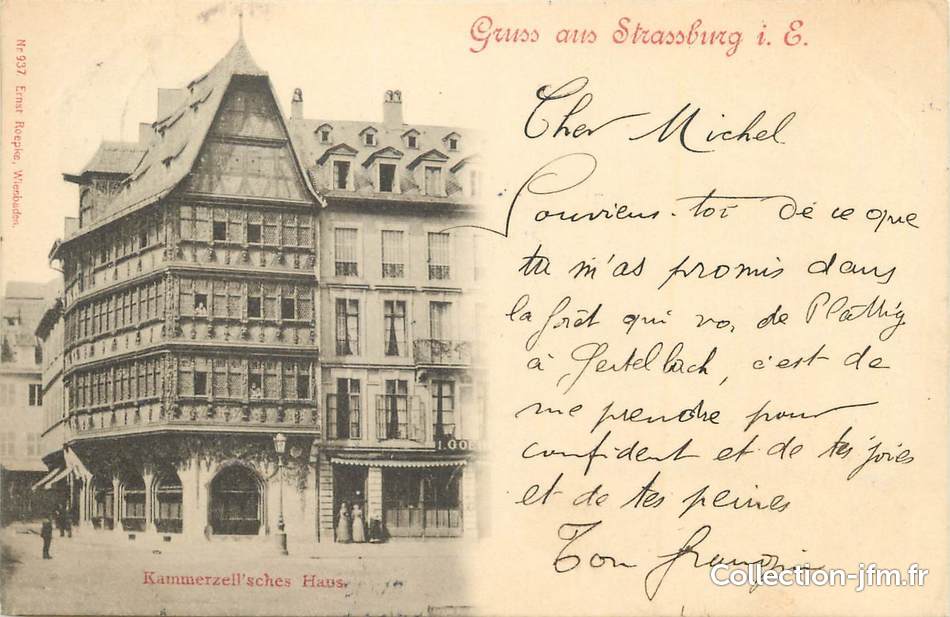 Nr 937 Ernst Roepke, Wiesbaden.
Gruss aus Strassburg i. E.
Cher Michel
Souviens-toi de ce que
tu m'as promis dans
la forêt qui va de Plättig
à Gertelbach, c'est de
me prendre pour
confident et de tes joies
et de tes peines
Ton
Kammerzell'sches Haus.
Collection-jfm.fr